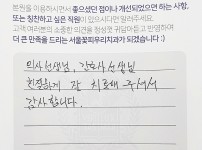 본원을 이용하시면서 좋으셨던 점이나 개선되었으면 하는 사항,
또는 칭찬하고 싶은 직원이 있으시다면 일러주세요.
고객 여러분의 소중한 의견을 정성껏 귀담아듣고 반영하여
더 큰 만족을 드리는 서울꽃피우리치과가 되겠습니다 :)
의사선생님, 간호사 선생님
친절하게 잘 치료해 주셔서
감사합니다.